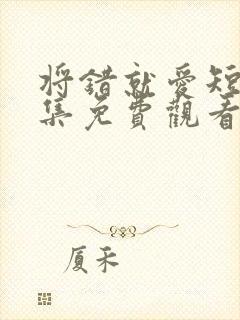 将错就爱短
集免费觀看
厦禾